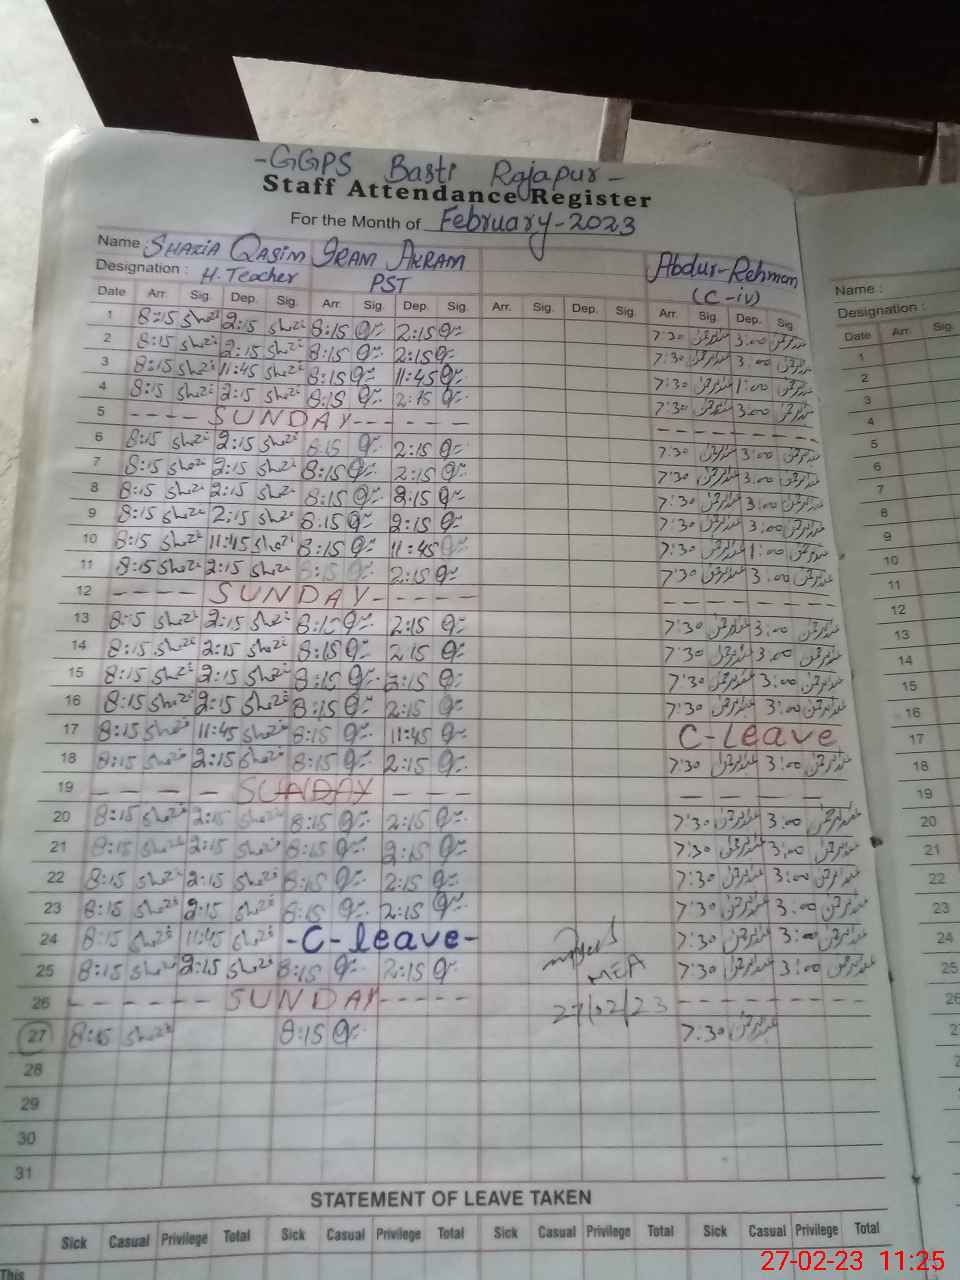 -GGPS Basti Rajapur-
Staff Attendance Register
For the Month of February-2023
Name Shazia Qasim Iram Akram Abdur-Rehman
Designation : H.Teacher PST (C-iv)
Date Arr. Sig. Dep. Sig. Arr. Sig. Dep. Sig. Arr. Sig. Dep. Sig. Arr. Sig. Dep. Sig.
1 8:15 2:15 8:15 2:15 7:30 عبدالرحمٰن 3:00 عبدالرحمٰن
2 8:15 2:15 8:15 2:15 7:30 عبدالرحمٰن 3:00 عبدالرحمٰن
3 8:15 11:45 8:15 11:45 7:30 عبدالرحمٰن 1:00 عبدالرحمٰن
4 8:15 2:15 8:15 2:15 7:30 عبدالرحمٰن 3:00 عبدالرحمٰن
5 ---- SUNDAY------
6 8:15 2:15 8:15 2:15 7:30 عبدالرحمٰن 3:00 عبدالرحمٰن
7 8:15 2:15 8:15 2:15 7:30 عبدالرحمٰن 3:00 عبدالرحمٰن
8 8:15 2:15 8:15 2:15 7:30 عبدالرحمٰن 3:00 عبدالرحمٰن
9 8:15 2:15 8:15 2:15 7:30 عبدالرحمٰن 3:00 عبدالرحمٰن
10 8:15 11:45 8:15 11:45 7:30 عبدالرحمٰن 1:00 عبدالرحمٰن
11 8:15 2:15 8:15 2:15 7:30 عبدالرحمٰن 3:00 عبدالرحمٰن
12 ---- SUNDAY-----
13 8:15 2:15 8:15 2:15 7:30 عبدالرحمٰن 3:00 عبدالرحمٰن
14 8:15 2:15 8:15 2:15 7:30 عبدالرحمٰن 3:00 عبدالرحمٰن
15 8:15 2:15 8:15 2:15 7:30 عبدالرحمٰن 3:00 عبدالرحمٰن
16 8:15 2:15 8:15 2:15 7:30 عبدالرحمٰن 3:00 عبدالرحمٰن
17 8:15 11:45 8:15 11:45 C-leave
18 8:15 2:15 8:15 2:15 7:30 عبدالرحمٰن 3:00 عبدالرحمٰن
19 ---- SUNDAY ---
20 8:15 2:15 8:15 2:15 7:30 عبدالرحمٰن 3:00 عبدالرحمٰن
21 8:15 2:15 8:15 2:15 7:30 عبدالرحمٰن 3:00 عبدالرحمٰن
22 8:15 2:15 8:15 2:15 7:30 عبدالرحمٰن 3:00 عبدالرحمٰن
23 8:15 2:15 8:15 2:15 7:30 عبدالرحمٰن 3:00 عبدالرحمٰن
24 8:15 11:45 -C-leave- 7:30 عبدالرحمٰن 3:00 عبدالرحمٰن
25 8:15 2:15 8:15 2:15 MEA 7:30 عبدالرحمٰن 3:00 عبدالرحمٰن
26 ------ SUNDAY----- 27/02/23
27 8:15 8:15 7:30 عبدالرحمٰن
28
29
30
31
STATEMENT OF LEAVE TAKEN
Sick Casual Privilege Total Sick Casual Privilege Total Sick Casual Privilege Total Sick Casual Privilege Total
This
Name :
Designation :
Date Arr. Sig.
1
2
3
4
5
6
7
8
9
10
11
12
13
14
15
16
17
18
19
20
21
22
23
24
25
26
27-02-23 11:25